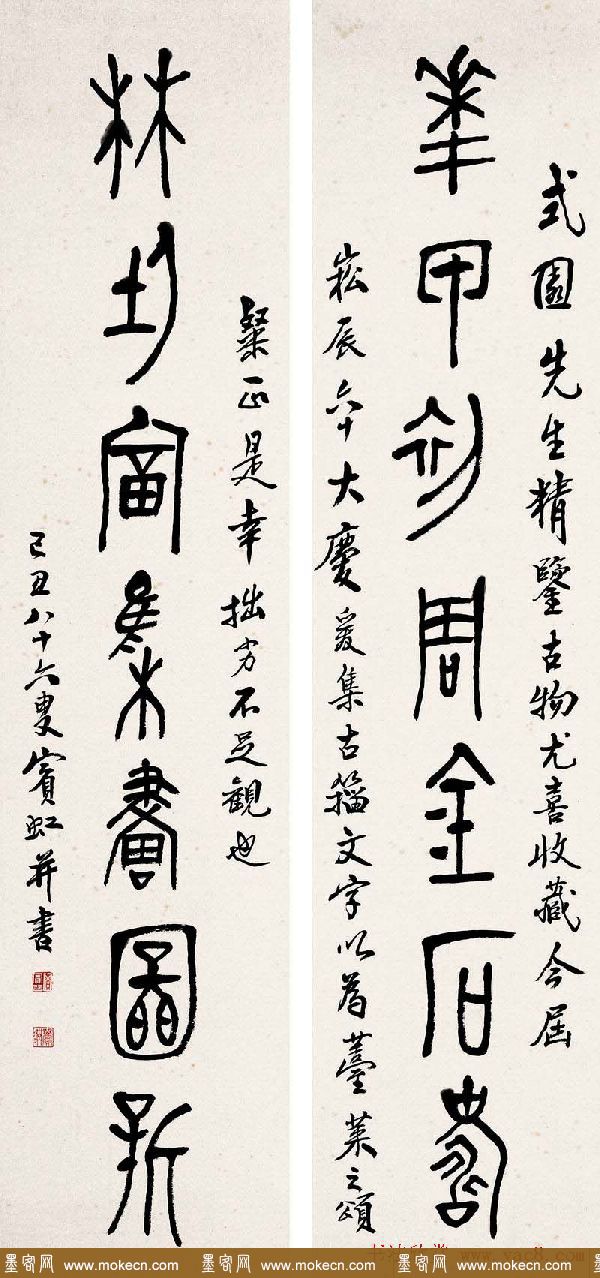 式園先生精鑒古物尤喜收藏今屆
華甲初周金石壽
崧辰六十大慶爰集古籀文字以為薹萊之頌
粲正是幸拙劣不足觀也
林均富集畫圖新
己丑八十六叟賓虹并書
www.yac8.com
墨客网 www.mokecn.com 墨客网 www.mokecn.com 墨客网 www.mokecn.com